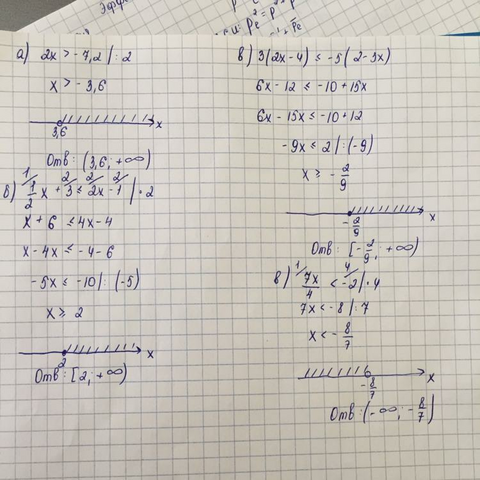 Эффе
а) 2x > -7,2 | : 2
x > -3,6
3,6 x
Отв: (3,6; +∞)
б) 1/2 x + 3 ≤ 2x - 1 | · 2
x + 6 ≤ 4x - 4
x - 4x ≤ -4 - 6
-5x ≤ -10 | : (-5)
x ≥ 2
2 x
Отв: [2; +∞)
в) 3(2x - 4) ≤ -5(2 - 3x)
6x - 12 ≤ -10 + 15x
6x - 15x ≤ -10 + 12
-9x ≤ 2 | : (-9)
x ≥ - 2/9
- 2/9 x
Отв: [- 2/9; +∞)
в) 7x/4 < -2 | · 4
7x < -8 | : 7
x < - 8/7
- 8/7 x
Отв: (-∞; - 8/7)